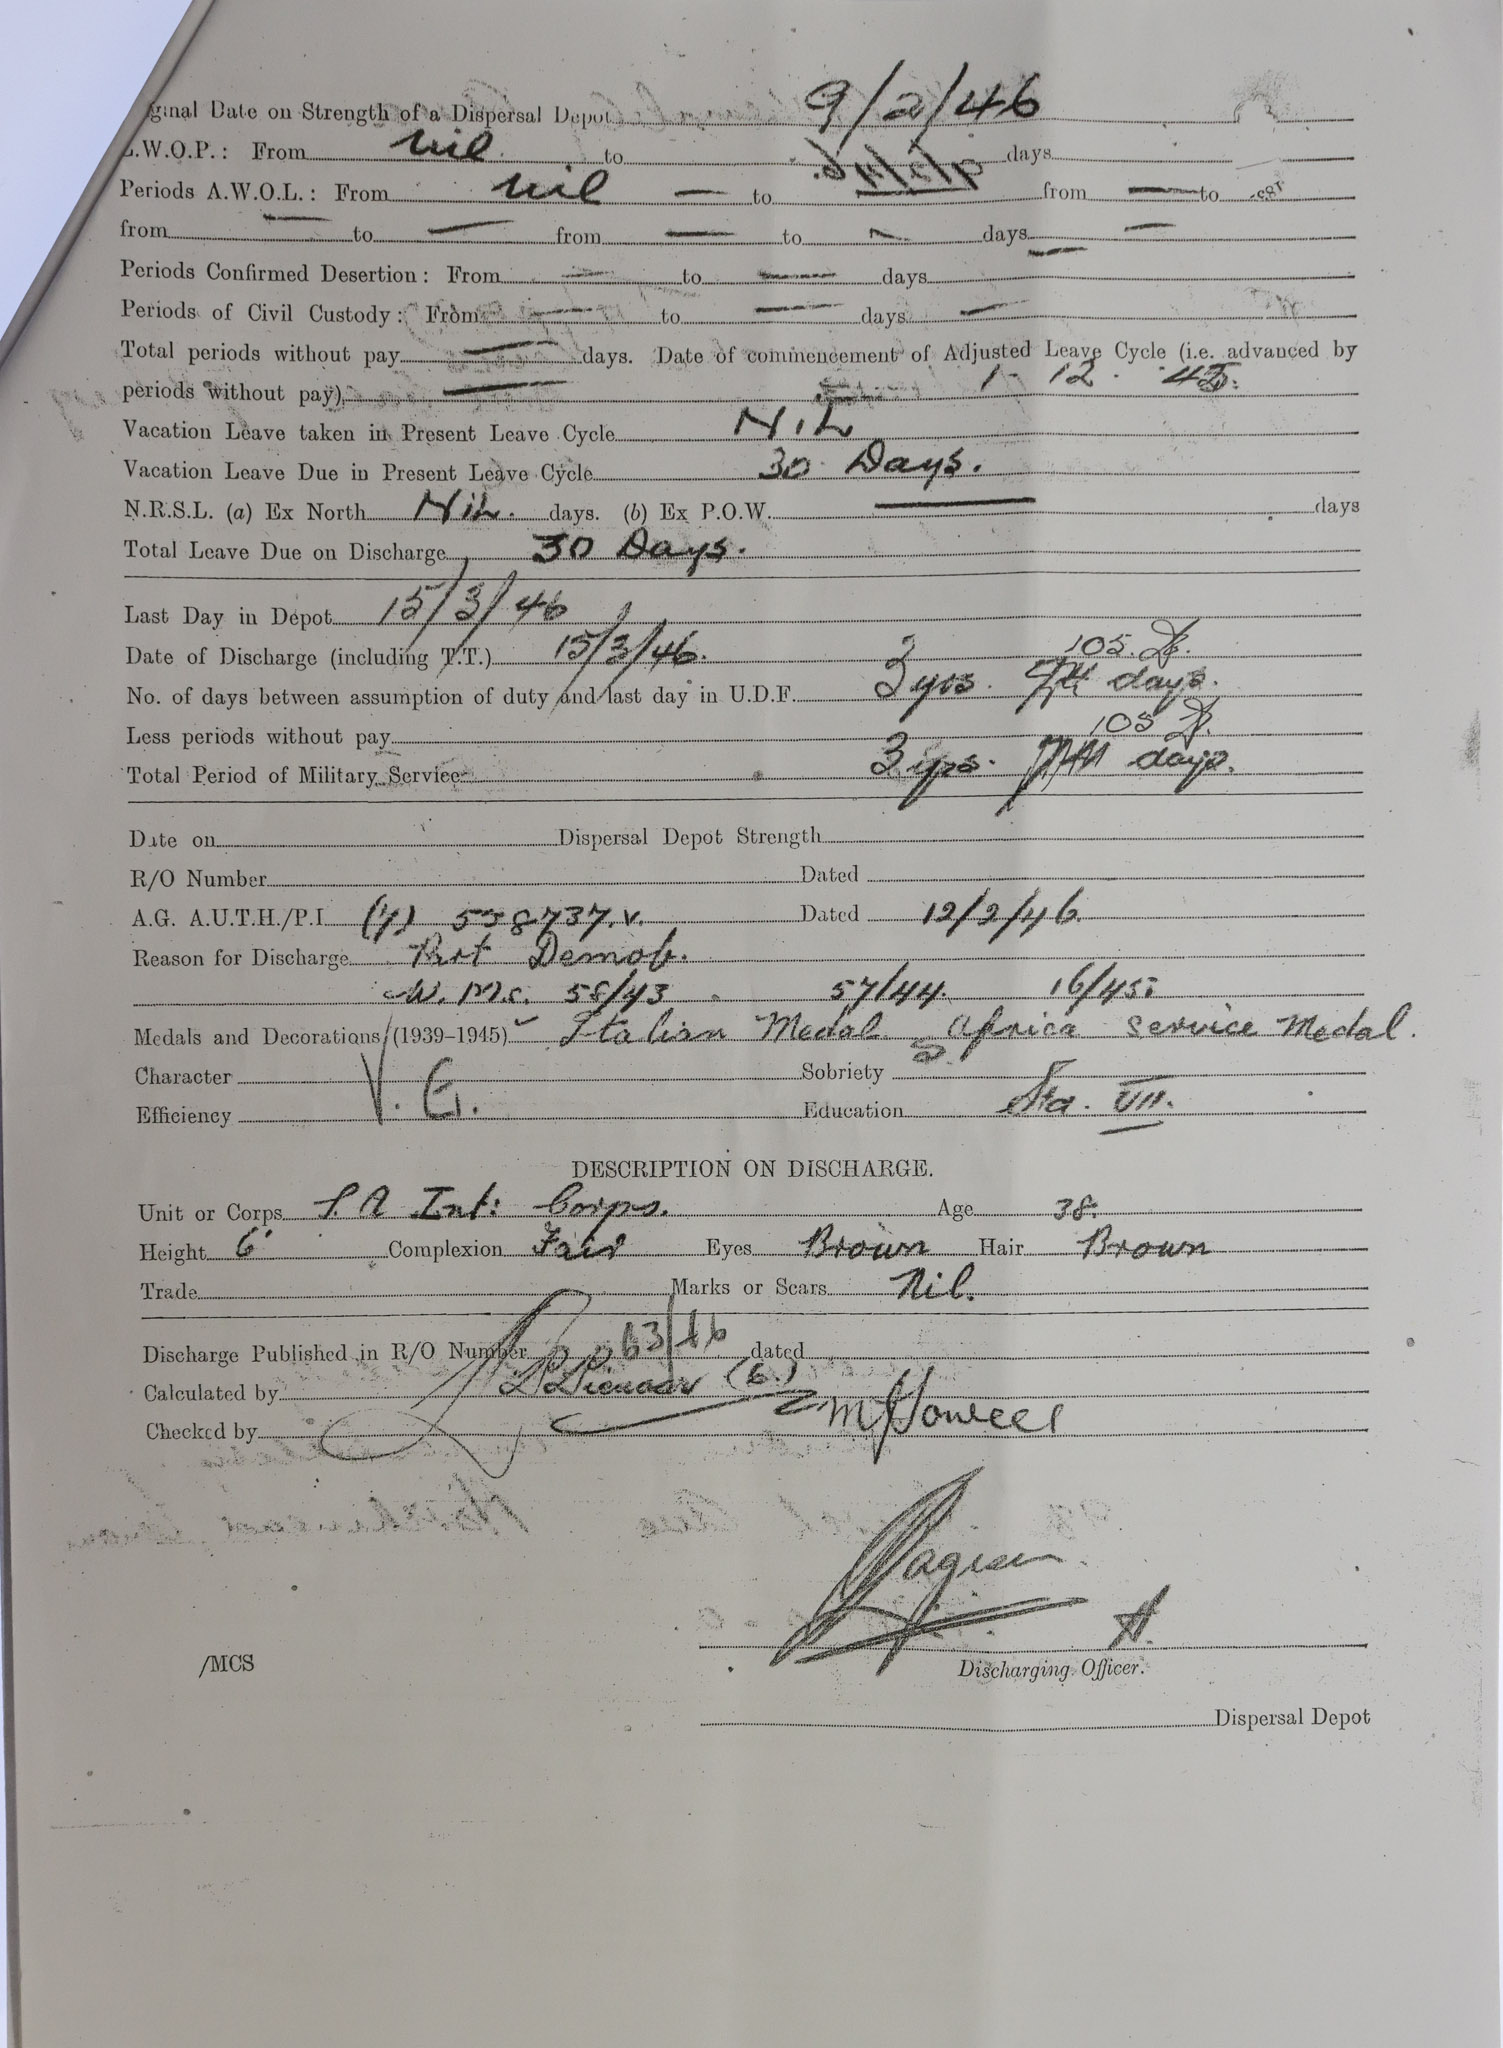 ginal Date on Strength of a Dispersal Depot 9/2/46
.W.O.P.: From nil to days
Periods A.W.O.L.: From nil — to from — to
from — to — from — to — days —
Periods Confirmed Desertion: From — to — days
Periods of Civil Custody: From — to — days —
Total periods without pay — days. Date of commencement of Adjusted Leave Cycle (i.e. advanced by
periods without pay) — 1 - 12 - 45.
Vacation Leave taken in Present Leave Cycle NiL
Vacation Leave Due in Present Leave Cycle 30 Days.
N.R.S.L. (a) Ex North NiL. days. (b) Ex P.O.W. — days
Total Leave Due on Discharge 30 Days.
Last Day in Depot 15/3/46
Date of Discharge (including T.T.) 15/3/46. 105
No. of days between assumption of duty and last day in U.D.F. 3 yrs. days.
Less periods without pay 105
Total Period of Military Service 3 yrs. days.
Date on Dispersal Depot Strength
R/O Number Dated
A.G. A.U.T.H./P.I. 558737.v. Dated 12/2/46.
Reason for Discharge Demob.
W.M.S. 58/43 57/44. 16/45.
Medals and Decorations (1939–1945) Italian Medal Africa Service Medal.
Character Sobriety
Efficiency V. G. Education Sta. VII.
DESCRIPTION ON DISCHARGE.
Unit or Corps S.A Int: Corps. Age 38.
Height 6' Complexion Fair Eyes Brown Hair Brown
Trade Marks or Scars Nil.
Discharge Published in R/O Number 63/46 dated
Calculated by (6.)
Checked by
/MCS
Discharging Officer.
Dispersal Depot